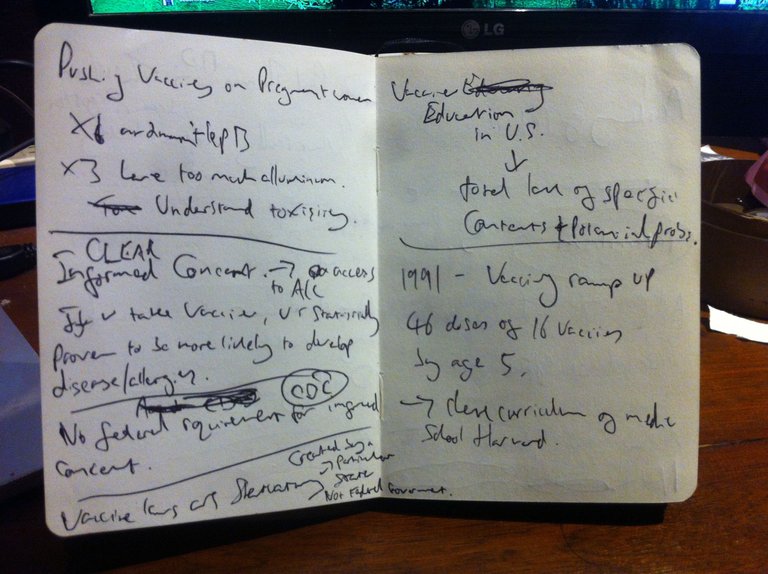 LG
Pushing Vaccines on Pregnant women
X6 hep B
X3 have too much alluminum.
Understand toxicity.
CLEAR
Informed Concent. → access
to
If u take Vaccines, U r Statistically
Proven to be more likely to develop
disease/allergies.
CDC
No federal requirement for informed
Concent.
Vaccine laws are
Created by a
→ Particular
State
Not Federal Government.
Vaccine
Education
in U.S.
↓
total lack of specific
Contents & Potencial probs.
1991 - Vaccine ramp up
46 doses of 16 Vaccines
by age 5.
→ curriculum of medic
School Harvard.